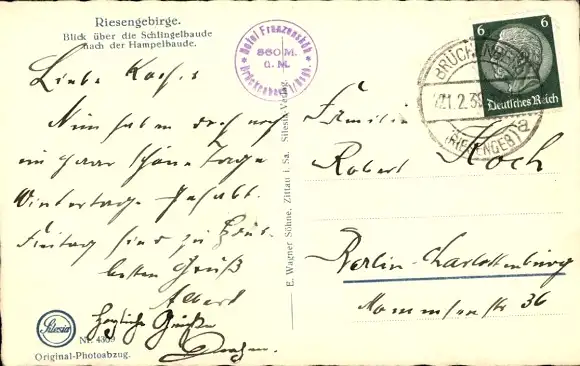 Riesengebirge.
Blick über die Schlingelbaude
nach der Hampelbaude.
Hotel Franzenshöh
860 M.
ü. M.
Brückenberg i/Rsgb.
6 6
Deutsches Reich
BRÜCKENBERG
21.2.39
(RIESENGEB) a
Liebe Koch's
Nun haben doch noch
ein paar schöne Tage
Wintertage gehabt.
Freitag sind zu Haus
besten Gruß
Albert
Herzliche Grüße
Familie
Robert Koch
Berlin-Charlottenburg
Mommsenstr 36
E. Wagner Söhne, Zittau i. Sa. Silesia-Verlag.
Silesia
Nr. 4369
Original-Photoabzug.